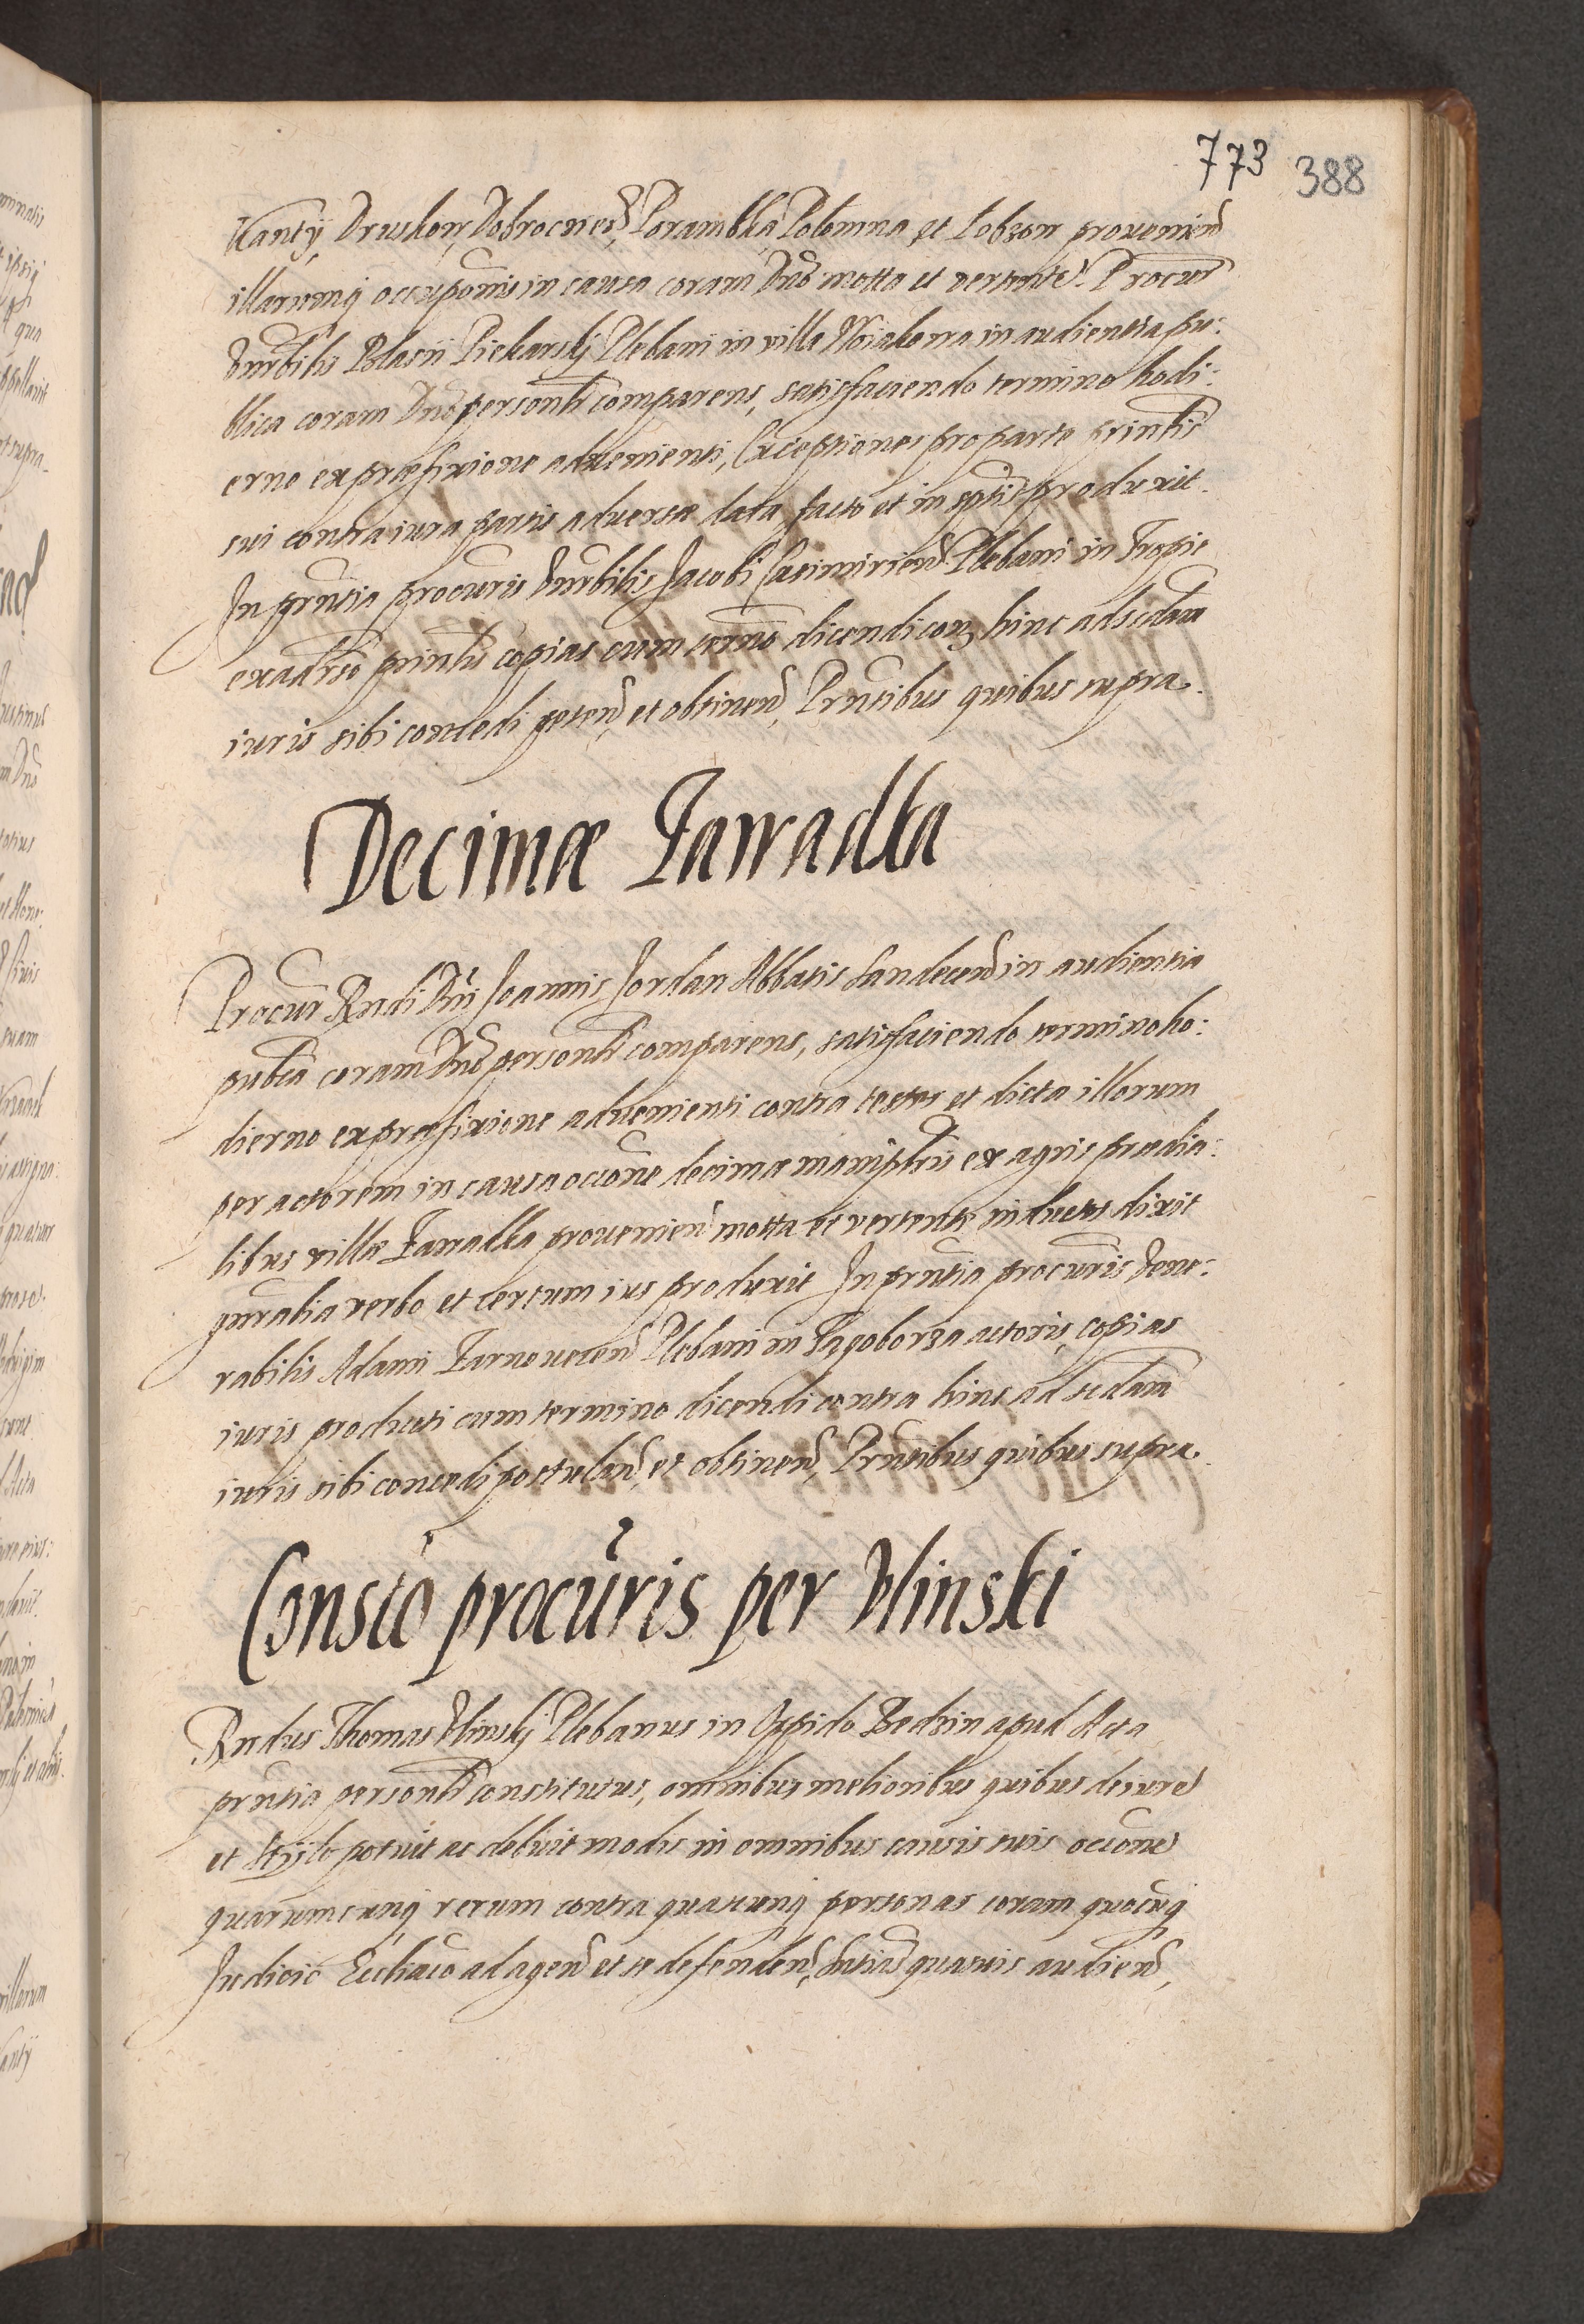 773 388
Kanty, Druskow, Dobrociesd, Porambka Polomna et Lobzow prouenien
illarumq occuponiis in causa coram Dno motta et vertente. Procur
Vnrbilis Blasii Piekarskj Plebani in villa Wiakowa in audientia pu:
blica coram Dno personlr comparens, satisfaciendo termino hodi:
erno ex præfixione aduenienti, Exceptiones pro parte prinlis
sui contra iura partis aduersæ data facto et in sptis produxit.
In prntia procuris Vnrbilis Jacobi Casimirien Plebani in Tropie
ex aduerso prinlis copias cum termo dicendi con, hinc ad scdam
iuris sibi concedi peten, et obtinen, Prntibus quibus supra.
Decimæ Zawadka
Procur Rndi Dni Joannis Jordan Abbatis Sandecen in audientia
publca coram Dno personlr comparens, satisfaciendo termino ho:
dierno ex præfixione aduenienti contra testes et dicta illorum
per actorem in causa occone decimæ maniplris ex agris prædia:
libus villæ Zawadka prouenien motta et vertente inductos dixit
gnralia verbo et certum ius produxit In prntia procuris Vene:
rabilis Adami Tarnouecen Plebani in Tęgoborza actoris, copias
iuris producti cum termino dicendi contra hinc ad scdam
iuris sibi concedi postulan, et obtinen, Prntibus quibus supra.
Constco procuris per Vlinski
Rndus Thomas Vlinskj Plebanus in Oppido Bedzin apud Acta
prntia personlr constitutus, omnibus melioribus quibus de iure
et stÿlo potuit ac debuit modis in omnibus causis suis occone
quarumcunq rerum contra quascunq personas coram quocunq
Judicio Ecclîaco ad agen et se defenden, sntias quasuis audien,